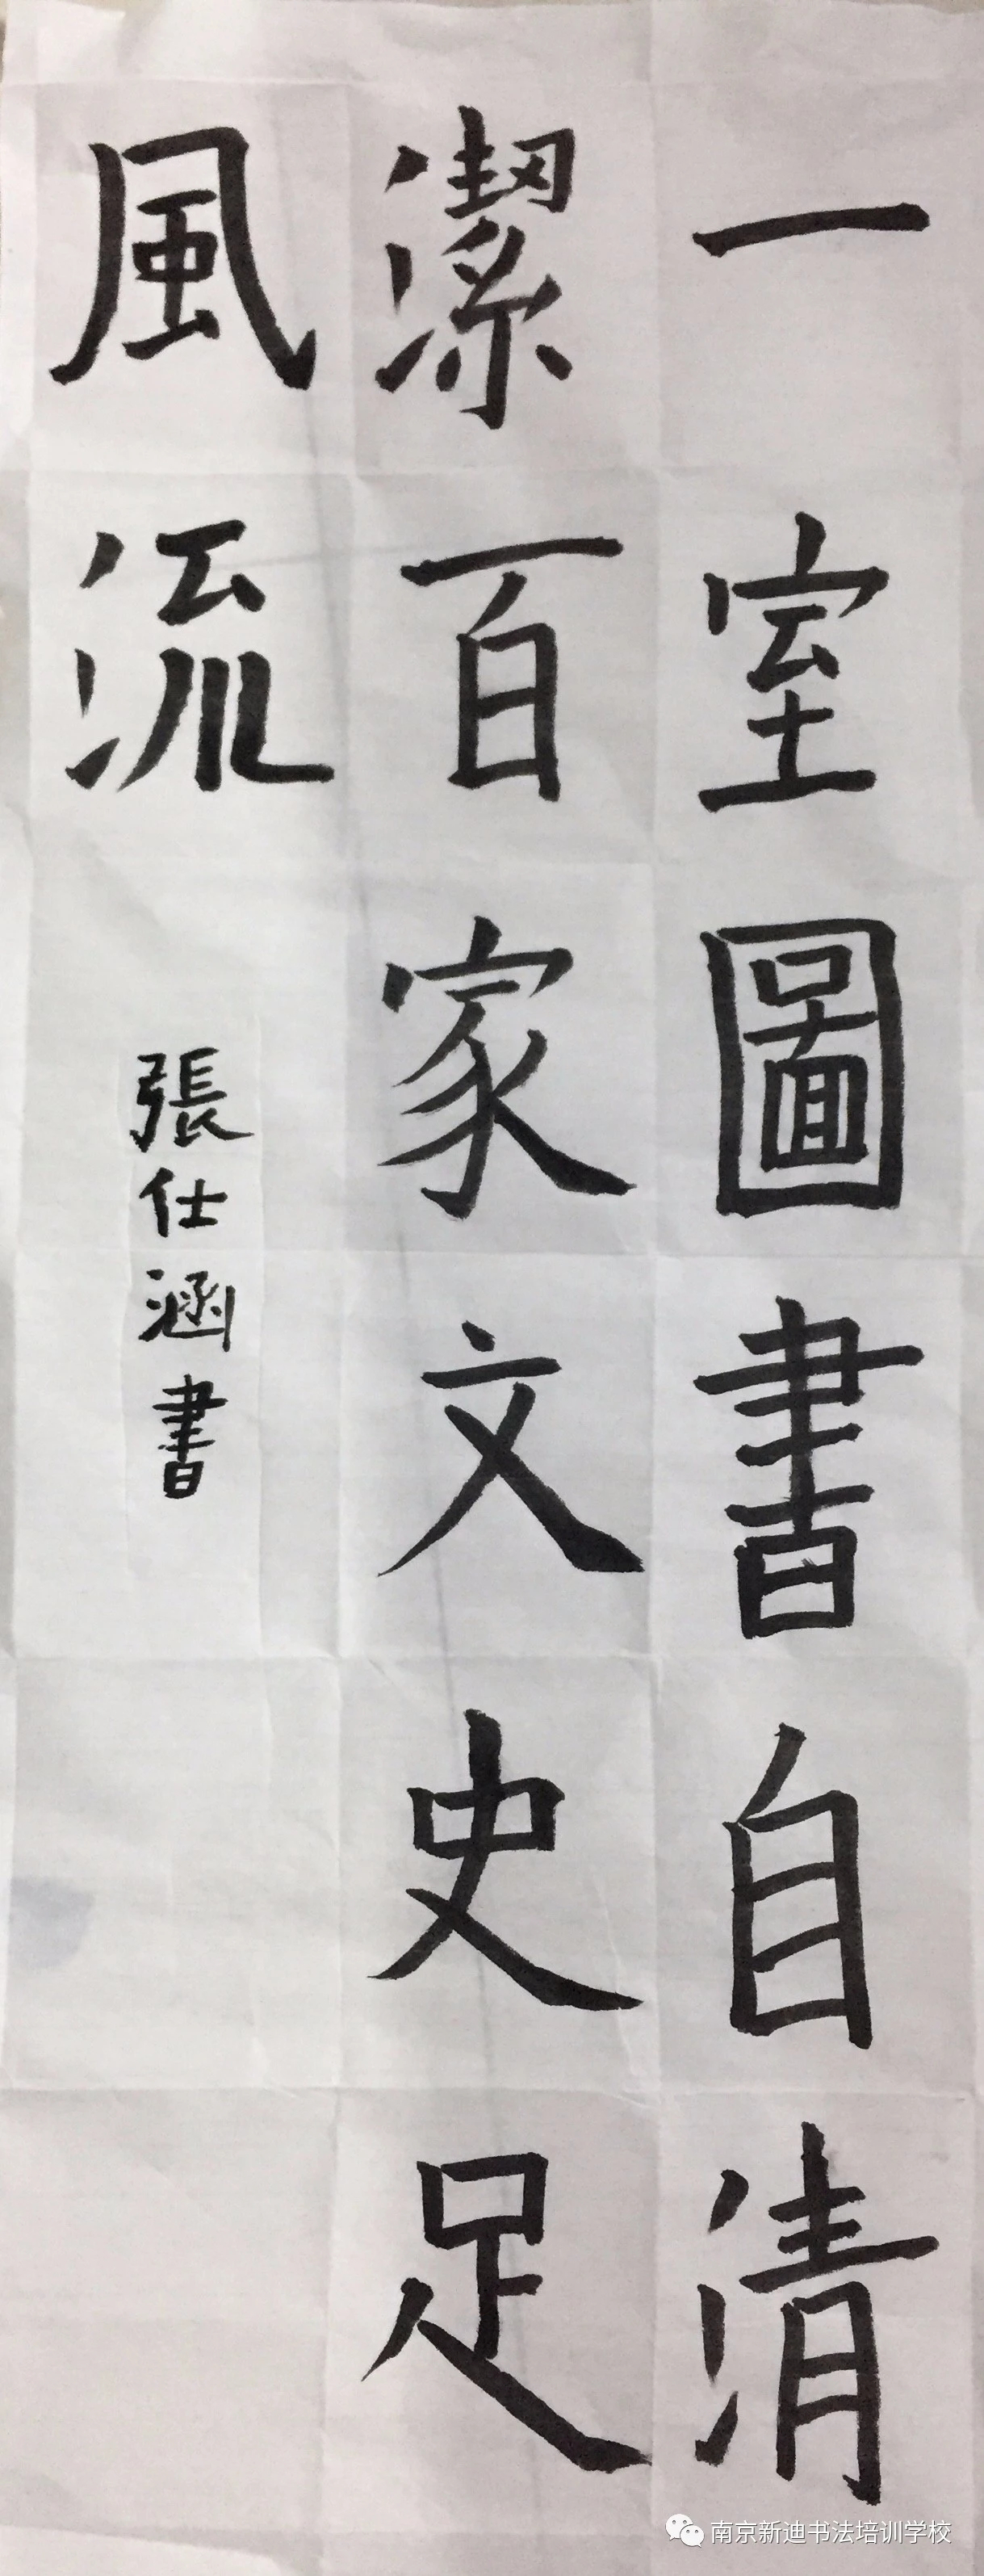 一室圖書自清
潔百家文史足
風流
張仕涵書
南京新迪书法培训学校